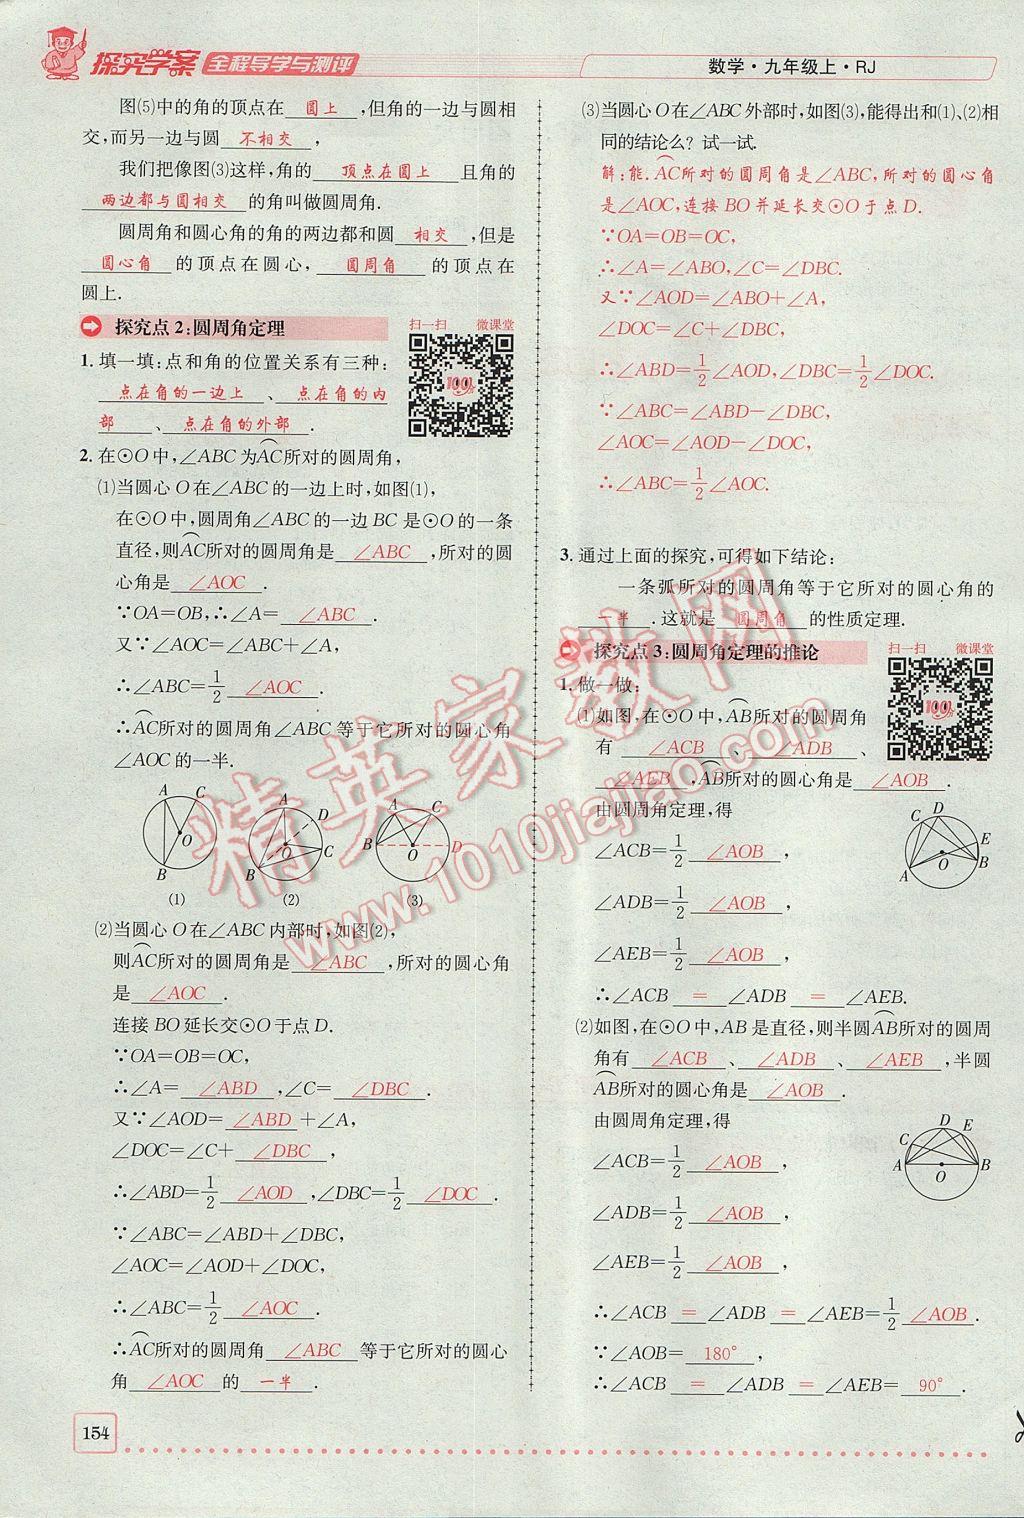 探究学案 全程导学与测评
数学·九年级上·RJ
图(5)中的角的顶点在 圆上 ,但角的一边与圆相
交,而另一边与圆 不相交 ,
我们把像图(3)这样,角的 顶点在圆上 且角的
两边都与圆相交 的角叫做圆周角.
圆周角和圆心角的角的两边都和圆 相交 ,但是
圆心角 的顶点在圆心, 圆周角 的顶点在
圆上.
探究点2:圆周角定理
扫一扫 微课堂
1.填一填:点和角的位置关系有三种:
点在角的一边上 、 点在角的内
部 、 点在角的外部 .
2.在⊙O中,∠ABC为AC所对的圆周角,
(1)当圆心O在∠ABC的一边上时,如图(1),
在⊙O中,圆周角∠ABC的一边BC是⊙O的一条
直径,则AC所对的圆周角是 ∠ABC ,所对的圆
心角是 ∠AOC .
∵OA=OB,∴∠A= ∠ABC .
又∵∠AOC=∠ABC+∠A,
∴∠ABC=1/2 ∠AOC .
∴AC所对的圆周角∠ABC等于它所对的圆心角
∠AOC的一半.
A C O B
A D O C B
A C B O D
(1) (2) (3)
(2)当圆心O在∠ABC内部时,如图(2),
则AC所对的圆周角是 ∠ABC ,所对的圆心角
是 ∠AOC .
连接BO延长交⊙O于点D.
∵OA=OB=OC,
∴∠A= ∠ABD ,∠C= ∠DBC .
又∵∠AOD= ∠ABD +∠A,
∠DOC=∠C+ ∠DBC ,
∴∠ABD=1/2 ∠AOD ,∠DBC=1/2 ∠DOC .
∵∠ABC=∠ABD+∠DBC,
∠AOC=∠AOD+∠DOC,
∴∠ABC=1/2 ∠AOC .
∴AC所对的圆周角 ∠ABC 等于它所对的圆心
角 ∠AOC 的 一半 .
154
(3)当圆心O在∠ABC外部时,如图(3),能得出和(1)、(2)相
同的结论么?试一试.
解:能.AC所对的圆周角是∠ABC,所对的圆心角
是∠AOC,连接BO并延长交⊙O于点D.
∵OA=OB=OC,
∴∠A=∠ABO,∠C=∠DBC.
又∵∠AOD=∠ABO+∠A,
∠DOC=∠C+∠DBC,
∴∠ABD=1/2∠AOD,∠DBC=1/2∠DOC.
∵∠ABC=∠ABD-∠DBC,
∠AOC=∠AOD-∠DOC,
∴∠ABC=1/2∠AOC.
3.通过上面的探究,可得如下结论:
一条弧所对的圆周角等于它所对的圆心角的
一半 .这就是 圆周角 的性质定理.
探究点3:圆周角定理的推论
扫一扫 微课堂
1.做一做:
(1)如图,在⊙O中,AB所对的圆周角
有 ∠ACB 、 ∠ADB 、
∠AEB ,AB所对的圆心角是 ∠AOB .
由圆周角定理,得
C D E O A B
∠ACB=1/2 ∠AOB ,
∠ADB=1/2 ∠AOB ,
∠AEB=1/2 ∠AOB ,
∴∠ACB = ∠ADB = ∠AEB.
(2)如图,在⊙O中,AB是直径,则半圆AB所对的圆周
角有 ∠ACB 、 ∠ADB 、 ∠AEB ,半圆
AB所对的圆心角是 ∠AOB .
由圆周角定理,得
D E C A O B
∠ACB=1/2 ∠AOB ,
∠ADB=1/2 ∠AOB ,
∠AEB=1/2 ∠AOB ,
∴∠ACB = ∠ADB = ∠AEB=1/2 ∠AOB .
∵∠AOB= 180° ,
∴∠ACB = ∠ADB = ∠AEB= 90° .
精英家教网
www.1010jiajiao.com